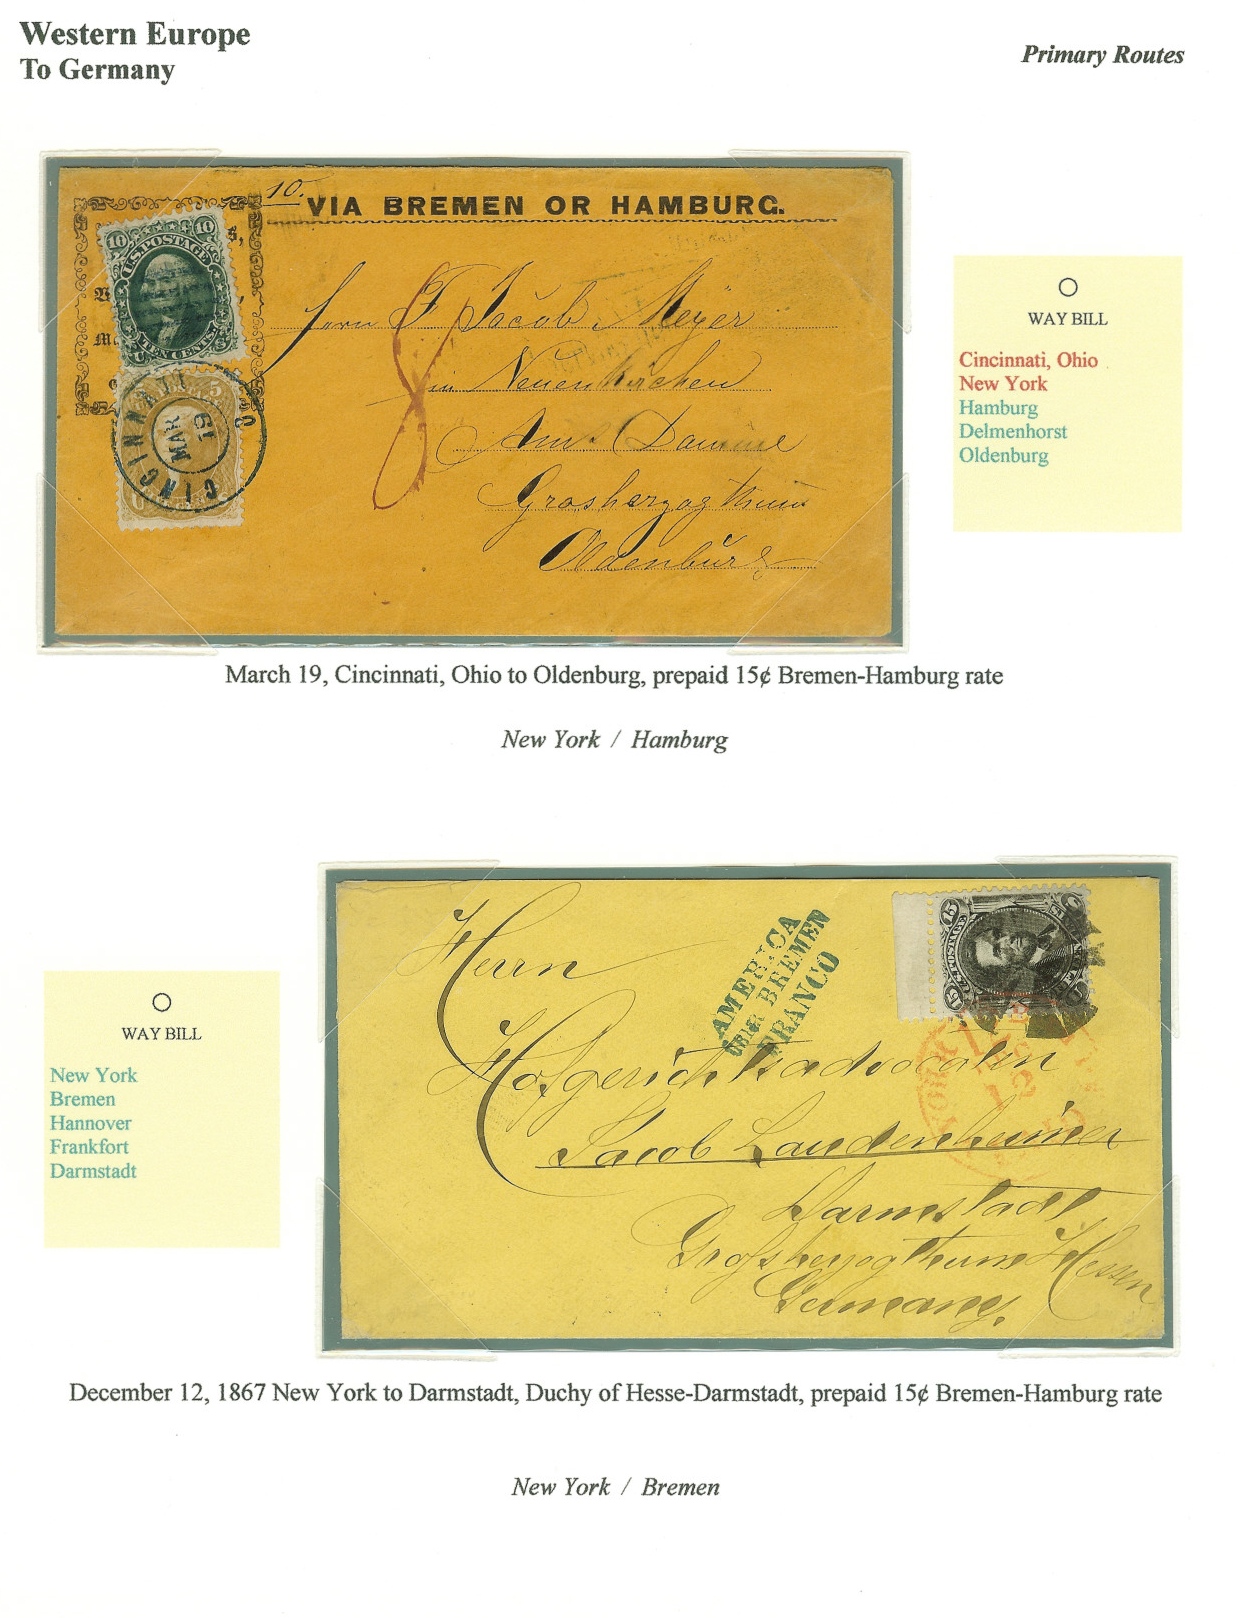 Western Europe
To Germany
Primary Routes
10.
VIA BREMEN OR HAMBURG.
10 10
U.S. POSTAGE
TEN CENTS
5
CINCINNATI O
MAR
19
8
Herrn F Jacob Meyer
in Neuenkirchen
Amt Damme
Grosherzogthum
Oldenburg
WAY BILL
Cincinnati, Ohio
New York
Hamburg
Delmenhorst
Oldenburg
March 19, Cincinnati, Ohio to Oldenburg, prepaid 15¢ Bremen-Hamburg rate
New York / Hamburg
AMERICA
ÜBER BREMEN
FRANCO
15
U.S. POSTAGE
15
12
Herrn
Hofgerichtsadvocaten
Jacob Laudenheimer
Darmstadt
Großherzogthum Hessen
Germany.
WAY BILL
New York
Bremen
Hannover
Frankfort
Darmstadt
December 12, 1867 New York to Darmstadt, Duchy of Hesse-Darmstadt, prepaid 15¢ Bremen-Hamburg rate
New York / Bremen